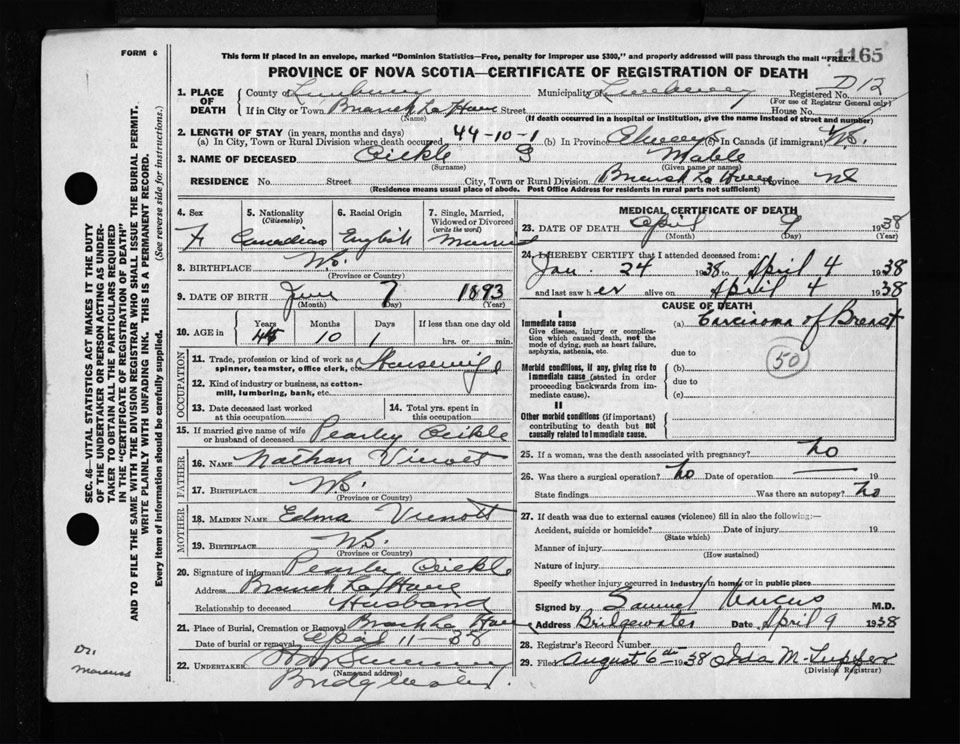 FORM 6
This form if placed in an envelope, marked "Dominion Statistics—Free, penalty for improper use $300," and properly addressed will pass through the mail "FREE"
1165
PROVINCE OF NOVA SCOTIA—CERTIFICATE OF REGISTRATION OF DEATH
1. PLACE OF DEATH County of Lunenburg Municipality of Lunenburg Registered No. D12
(For use of Registrar General only)
If in City or Town Branch LaHave Street House No.
(Name) (If death occurred in a hospital or institution, give the name instead of street and number)
2. LENGTH OF STAY (in years, months and days)
(a) In City, Town or Rural Division where death occurred 44-10-1 (b) In Province Always (c) In Canada (if immigrant)
3. NAME OF DECEASED Mable
(Surname) (Given name or names)
RESIDENCE No. Street City, Town or Rural Division Branch La Have Province NS
(Residence means usual place of abode. Post Office Address for residents in rural parts not sufficient)
4. Sex 5. Nationality (Citizenship) 6. Racial Origin 7. Single, Married, Widowed or Divorced (write the word)
F Canadian English Married
8. BIRTHPLACE NS.
(Province or Country)
9. DATE OF BIRTH June 7 1893
(Month) (Day) (Year)
10. AGE in Years Months Days If less than one day old
10 1 hrs. or min.
OCCUPATION
11. Trade, profession or kind of work as spinner, teamster, office clerk, etc. Housewife
12. Kind of industry or business, as cotton-mill, lumbering, bank, etc.
13. Date deceased last worked at this occupation
14. Total yrs. spent in this occupation
15. If married give name of wife or husband of deceased Pearley
FATHER
16. NAME Nathan Vienott
17. BIRTHPLACE NS.
(Province or Country)
MOTHER
18. MAIDEN NAME Edna Vienott
19. BIRTHPLACE NS.
(Province or Country)
20. Signature of informant Pearley
Address Branch La Have
Relationship to deceased Husband
21. Place of Burial, Cremation or Removal Branch La Have
Date of burial or removal April 11-38
22. UNDERTAKER
(Name and address)
Bridgewater.
MEDICAL CERTIFICATE OF DEATH
23. DATE OF DEATH April 9 1938
(Month) (Day) (Year)
24. I HEREBY CERTIFY that I attended deceased from:
Jan. 24 1938 to April 4 1938
and last saw her alive on April 4 1938
CAUSE OF DEATH
I
Immediate cause (a) Carcinoma of Breast
Give disease, injury or complication which caused death, not the mode of dying, such as heart failure, asphyxia, asthenia, etc.
50
due to
Morbid conditions, if any, giving rise to Immediate cause (stated in order proceeding backwards from immediate cause).
(b)
due to
(c)
II
Other morbid conditions (if important) contributing to death but not causally related to Immediate cause.
25. If a woman, was the death associated with pregnancy? no
26. Was there a surgical operation? no Date of operation 19
State findings Was there an autopsy? no
27. If death was due to external causes (violence) fill in also the following:—
Accident, suicide or homicide? Date of injury 19
(State which)
Manner of injury
(How sustained)
Nature of injury
Specify whether injury occurred in Industry, in home, or in public place
Signed by Samuel Marcus M.D.
Address Bridgewater Date April 9 1938
28. Registrar's Record Number
29. Filed August 6th 1938 Ida M. Tupper
(Division Registrar)
SEC. 46—VITAL STATISTICS ACT MAKES IT THE DUTY
OF THE UNDERTAKER OR PERSON ACTING AS UNDER-
TAKER TO OBTAIN ALL THE PARTICULARS REQUIRED
IN THE "CERTIFICATE OF REGISTRATION OF DEATH"
AND TO FILE THE SAME WITH THE DIVISION REGISTRAR WHO SHALL ISSUE THE BURIAL PERMIT.
WRITE PLAINLY WITH UNFADING INK. THIS IS A PERMANENT RECORD.
Every item of information should be carefully supplied. (See reverse side for instructions.)
Dr.
Marcus